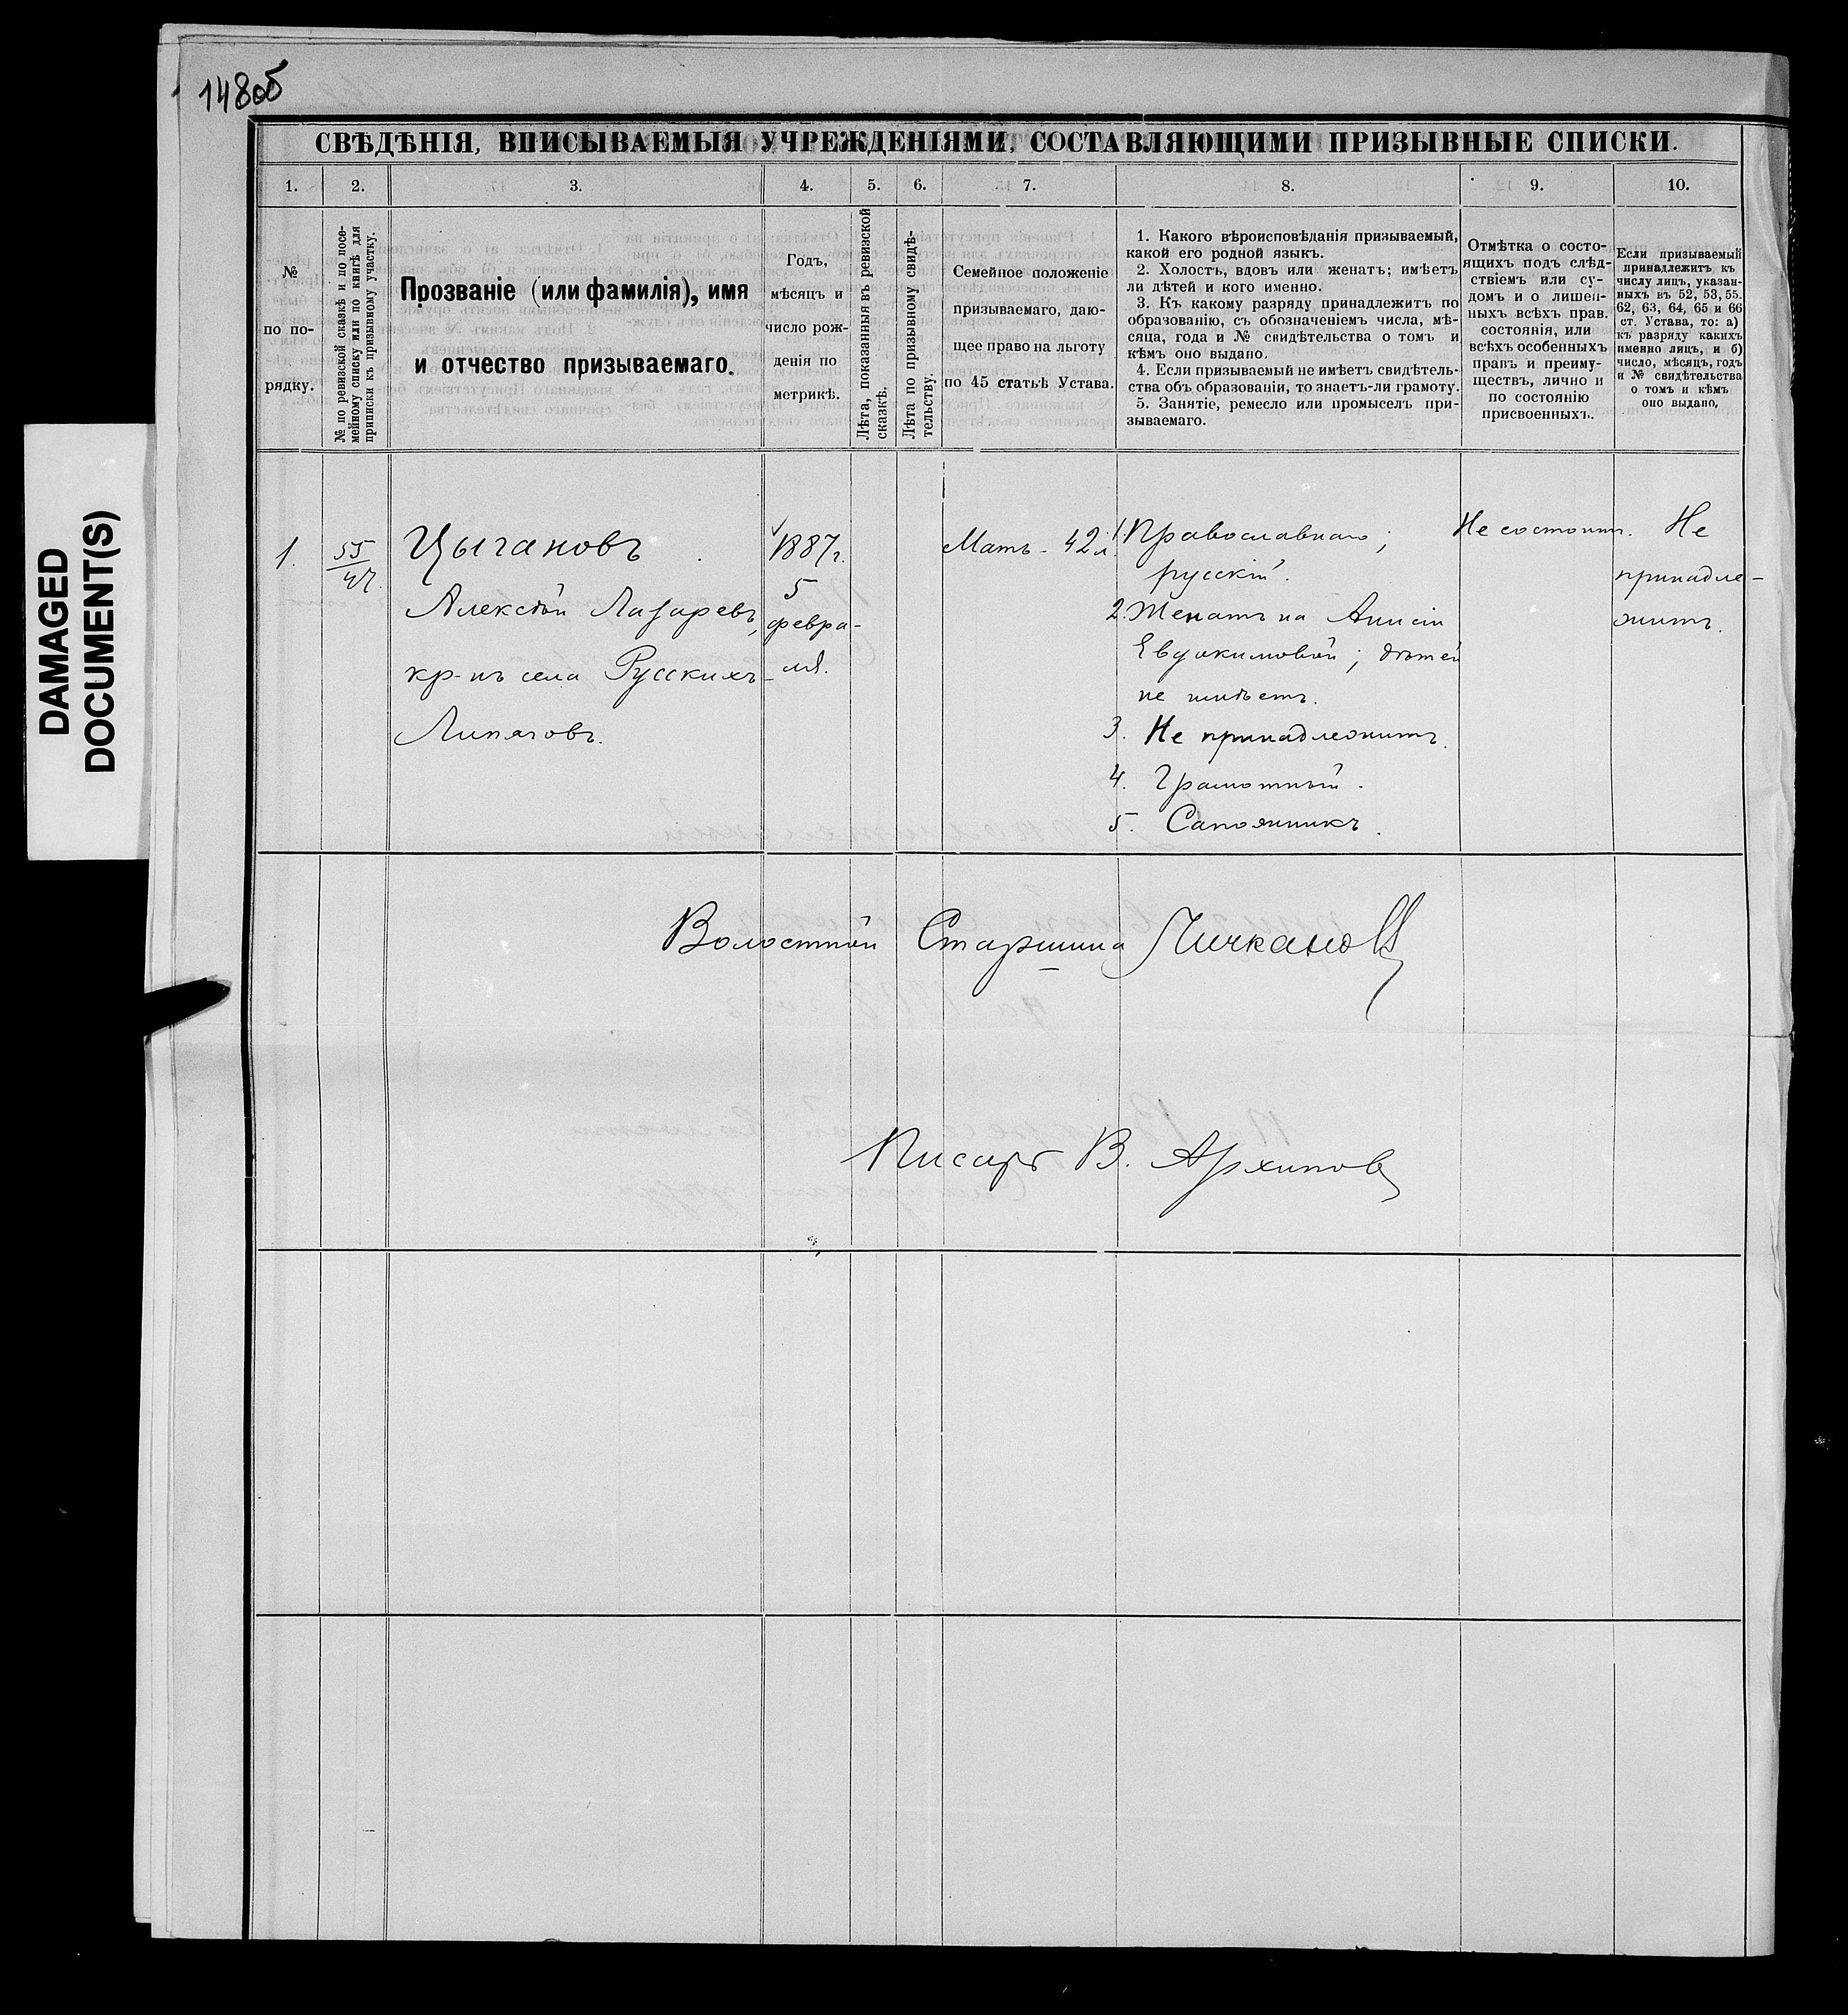 148об
СВѢДѢНІЯ, ВПИСЫВАЕМЫЯ УЧРЕЖДЕНІЯМИ, СОСТАВЛЯЮЩИМИ ПРИЗЫВНЫЕ СПИСКИ.
1. 2. 3. 4. 5. 6. 7. 8. 9. 10.
№
по по-
рядку.
№ по ревизской сказкѣ и по посе-
мейному списку или по книгѣ для
приписки къ призывному участку.
Прозваніе (или фамилія), имя
и отчество призываемаго.
Годъ,
мѣсяцъ и
число рож-
денія по
метрикѣ.
Лѣта, показанныя въ ревизской
сказкѣ.
Лѣта по призывному свидѣ-
тельству.
Семейное положеніе
призываемаго, даю-
щее право на льготу
по 45 статьѣ Устава.
1. Какого вѣроисповѣданія призываемый,
какой его родной языкъ.
2. Холостъ, вдовъ или женатъ; имѣетъ
ли дѣтей и кого именно.
3. Къ какому разряду принадлежитъ по
образованію, съ обозначеніемъ числа, мѣ-
сяца, года и № свидѣтельства о томъ и
кѣмъ оно выдано.
4. Если призываемый не имѣетъ свидѣтель-
ства объ образованіи, то знаетъ-ли грамоту.
5. Занятіе, ремесло или промыселъ при-
зываемаго.
Отмѣтка о состо-
ящихъ подъ слѣд-
ствіемъ или су-
домъ и о лишен-
ныхъ всѣхъ прав.
состоянія, или
всѣхъ особенныхъ
правъ и преиму-
ществъ, лично и
по состоянію
присвоенныхъ.
Если призываемый
принадлежитъ къ
числу лицъ, указан-
ныхъ въ 52, 53, 55.
62, 63, 64, 65 и 66
ст. Устава, то: а)
къ разряду какихъ
именно лицъ, и б)
число, мѣсяцъ, годъ
и № свидѣтельства
о томъ и кѣмъ
оно выдано,
1.
55
47.
Цыгановъ
Алексѣй Лазаревъ,
кр-нъ села Русскихъ-
Липяговъ.
1887г.
5
февра-
ля.
Мать - 42 л.
1. Православнаго;
русскій.
2. Женатъ на Анисіи
Евдокимовой; дѣтей
не имѣетъ.
3. Не принадлежитъ.
4. Грамотный.
5. Сапожникъ.
Не состоитъ.
Не
принадле-
житъ.
Волостной Старшина Пичкановъ
Писарь В. Архиповъ
DAMAGED
DOCUMENT(S)